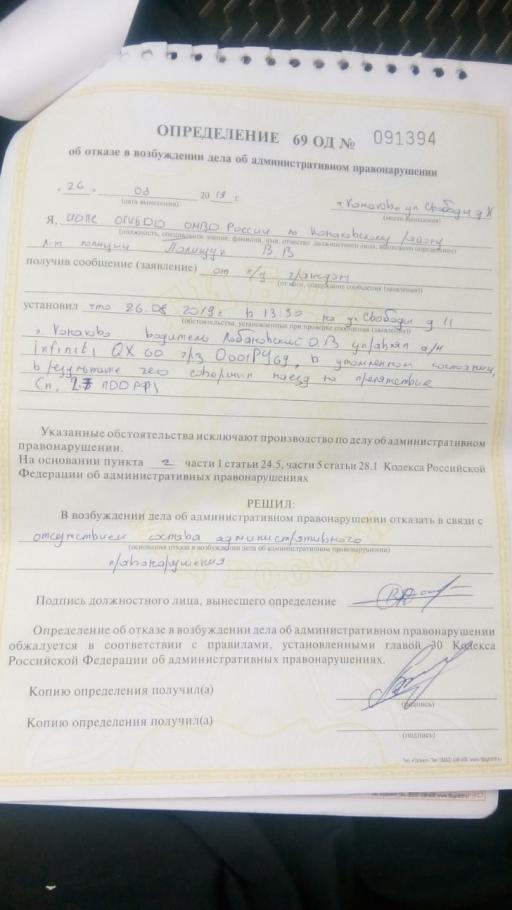 ОПРЕДЕЛЕНИЕ 69 ОД № 091394
об отказе в возбуждении дела об административном правонарушении
" 26 " 08 2019 г. г. Конаково ул Свободы д 11
(дата вынесения) (место вынесения)
Я, ИДПС ОГИБДД ОМВД России по Конаковскому району
(должность, специальное звание, фамилия, имя, отчество должностного лица, вынесшего определение)
л-т полиции В В
получив сообщение (заявление) от граждан
(от кого, содержание сообщения (заявления))
установил что 26.08 2019г. в 13:30 на ул Свободы д 11
(обстоятельства, установленные при проверке сообщения (заявления))
г. Конаково водитель Лобановский О.В управлял а/м
infiniti QX 60 грз О001РУ69, в утомленном состоянии,
в результате чего совершил наезд на препятствие
(п. 2.7 ПДД РФ)
Указанные обстоятельства исключают производство по делу об административном
правонарушении.
На основании пункта 2 части 1 статьи 24.5, части 5 статьи 28.1 Кодекса Российской
Федерации об административных правонарушениях
РЕШИЛ:
В возбуждении дела об административном правонарушении отказать в связи с
отсутствием состава административного
(основания отказа в возбуждении дела об административном правонарушении)
правонарушения
Подпись должностного лица, вынесшего определение
Определение об отказе в возбуждении дела об административном правонарушении
обжалуется в соответствии с правилами, установленными главой 30 Кодекса
Российской Федерации об административных правонарушениях.
Копию определения получил(а)
(подпись)
Копию определения получил(а)
(подпись)